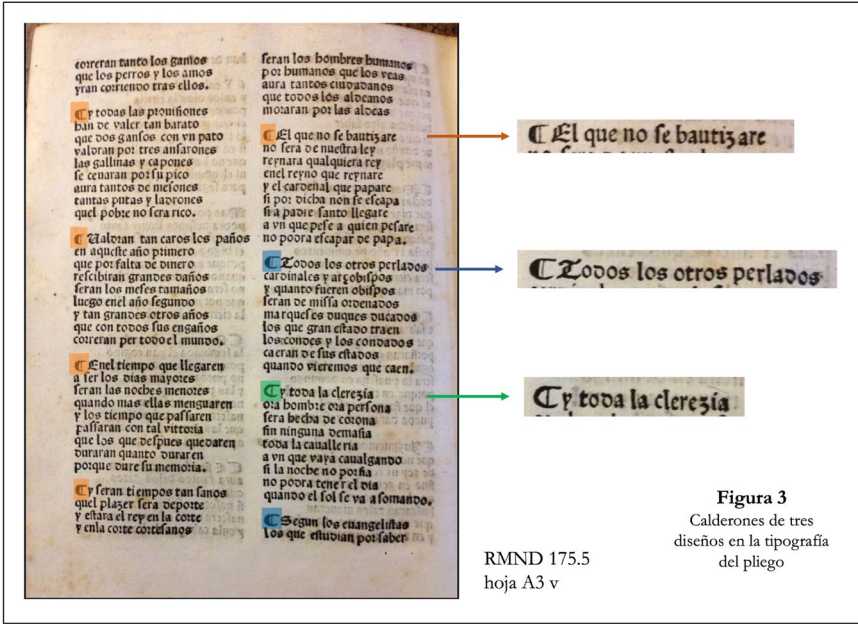 correran tanto los gansos
que los perros y los amos
yran corriendo tras ellos.
¶ y todas las prouisiones
han de valer tan barato
que dos gansos con vn pato
valdran por tres ansarones
las gallinas y capones
se cenaran por su pico
aura tantos de mesones
tantas putas y ladrones
quel pobre no sera rico.
¶ Ualdran tan caros los paños
en aqueste año primero
que por falta de dinero
rescibiran grandes daños
seran los meses tamaños
luego enel año segundo
y tan grandes otros años
que con todos sus engaños
correran per todo el mundo.
¶ Enel tiempo que llegaren
a ser los dias mayores
seran las noches menores
quando mas ellas menguaren
y los tiempo que passaren
passaran con tal vittoria
que los que despues quedaren
duraran quanto duraren
porque dure su memoria.
¶ y seran tiempos tan sanos
quel plazer sera deporte
y estara el rey en la corte
y enla corte cortesanos
seran los hombres humanos
por humanos que los veas
aura tantos ciudadanos
que todos los aldeanos
moraran por las aldeas
¶ El que no se bautizare
no sera de nuestra ley
reynara qualquiera rey
enel reyno que reynare
y el cardenal que papare
si por dicha non se escapa
si a padre santo llegare
a vn que pese a quien pesare
no podra escapar de papa.
¶ Todos los otros perlados
cardinales y arçobispos
y quanto fueren obispos
seran de missa ordenados
marqueses duques ducados
los que gran estado traen
los condes y los condados
caeran de sus estados
quando vieremos que caen.
¶ y toda la clerezia
ora hombre ora persona
sera hecha de corona
sin ninguna demasia
toda la caualleria
a vn que vaya caualgando
si la noche no porfia
no podra tener el dia
quando el sol se va a somando.
¶ Segun los euangelistas
los que estudian por saber
¶ El que no se bautizare
¶ Todos los otros perlados
¶ y toda la clerezia
RMND 175.5
hoja A3 v
Figura 3
Calderones de tres
diseños en la tipografía
del pliego